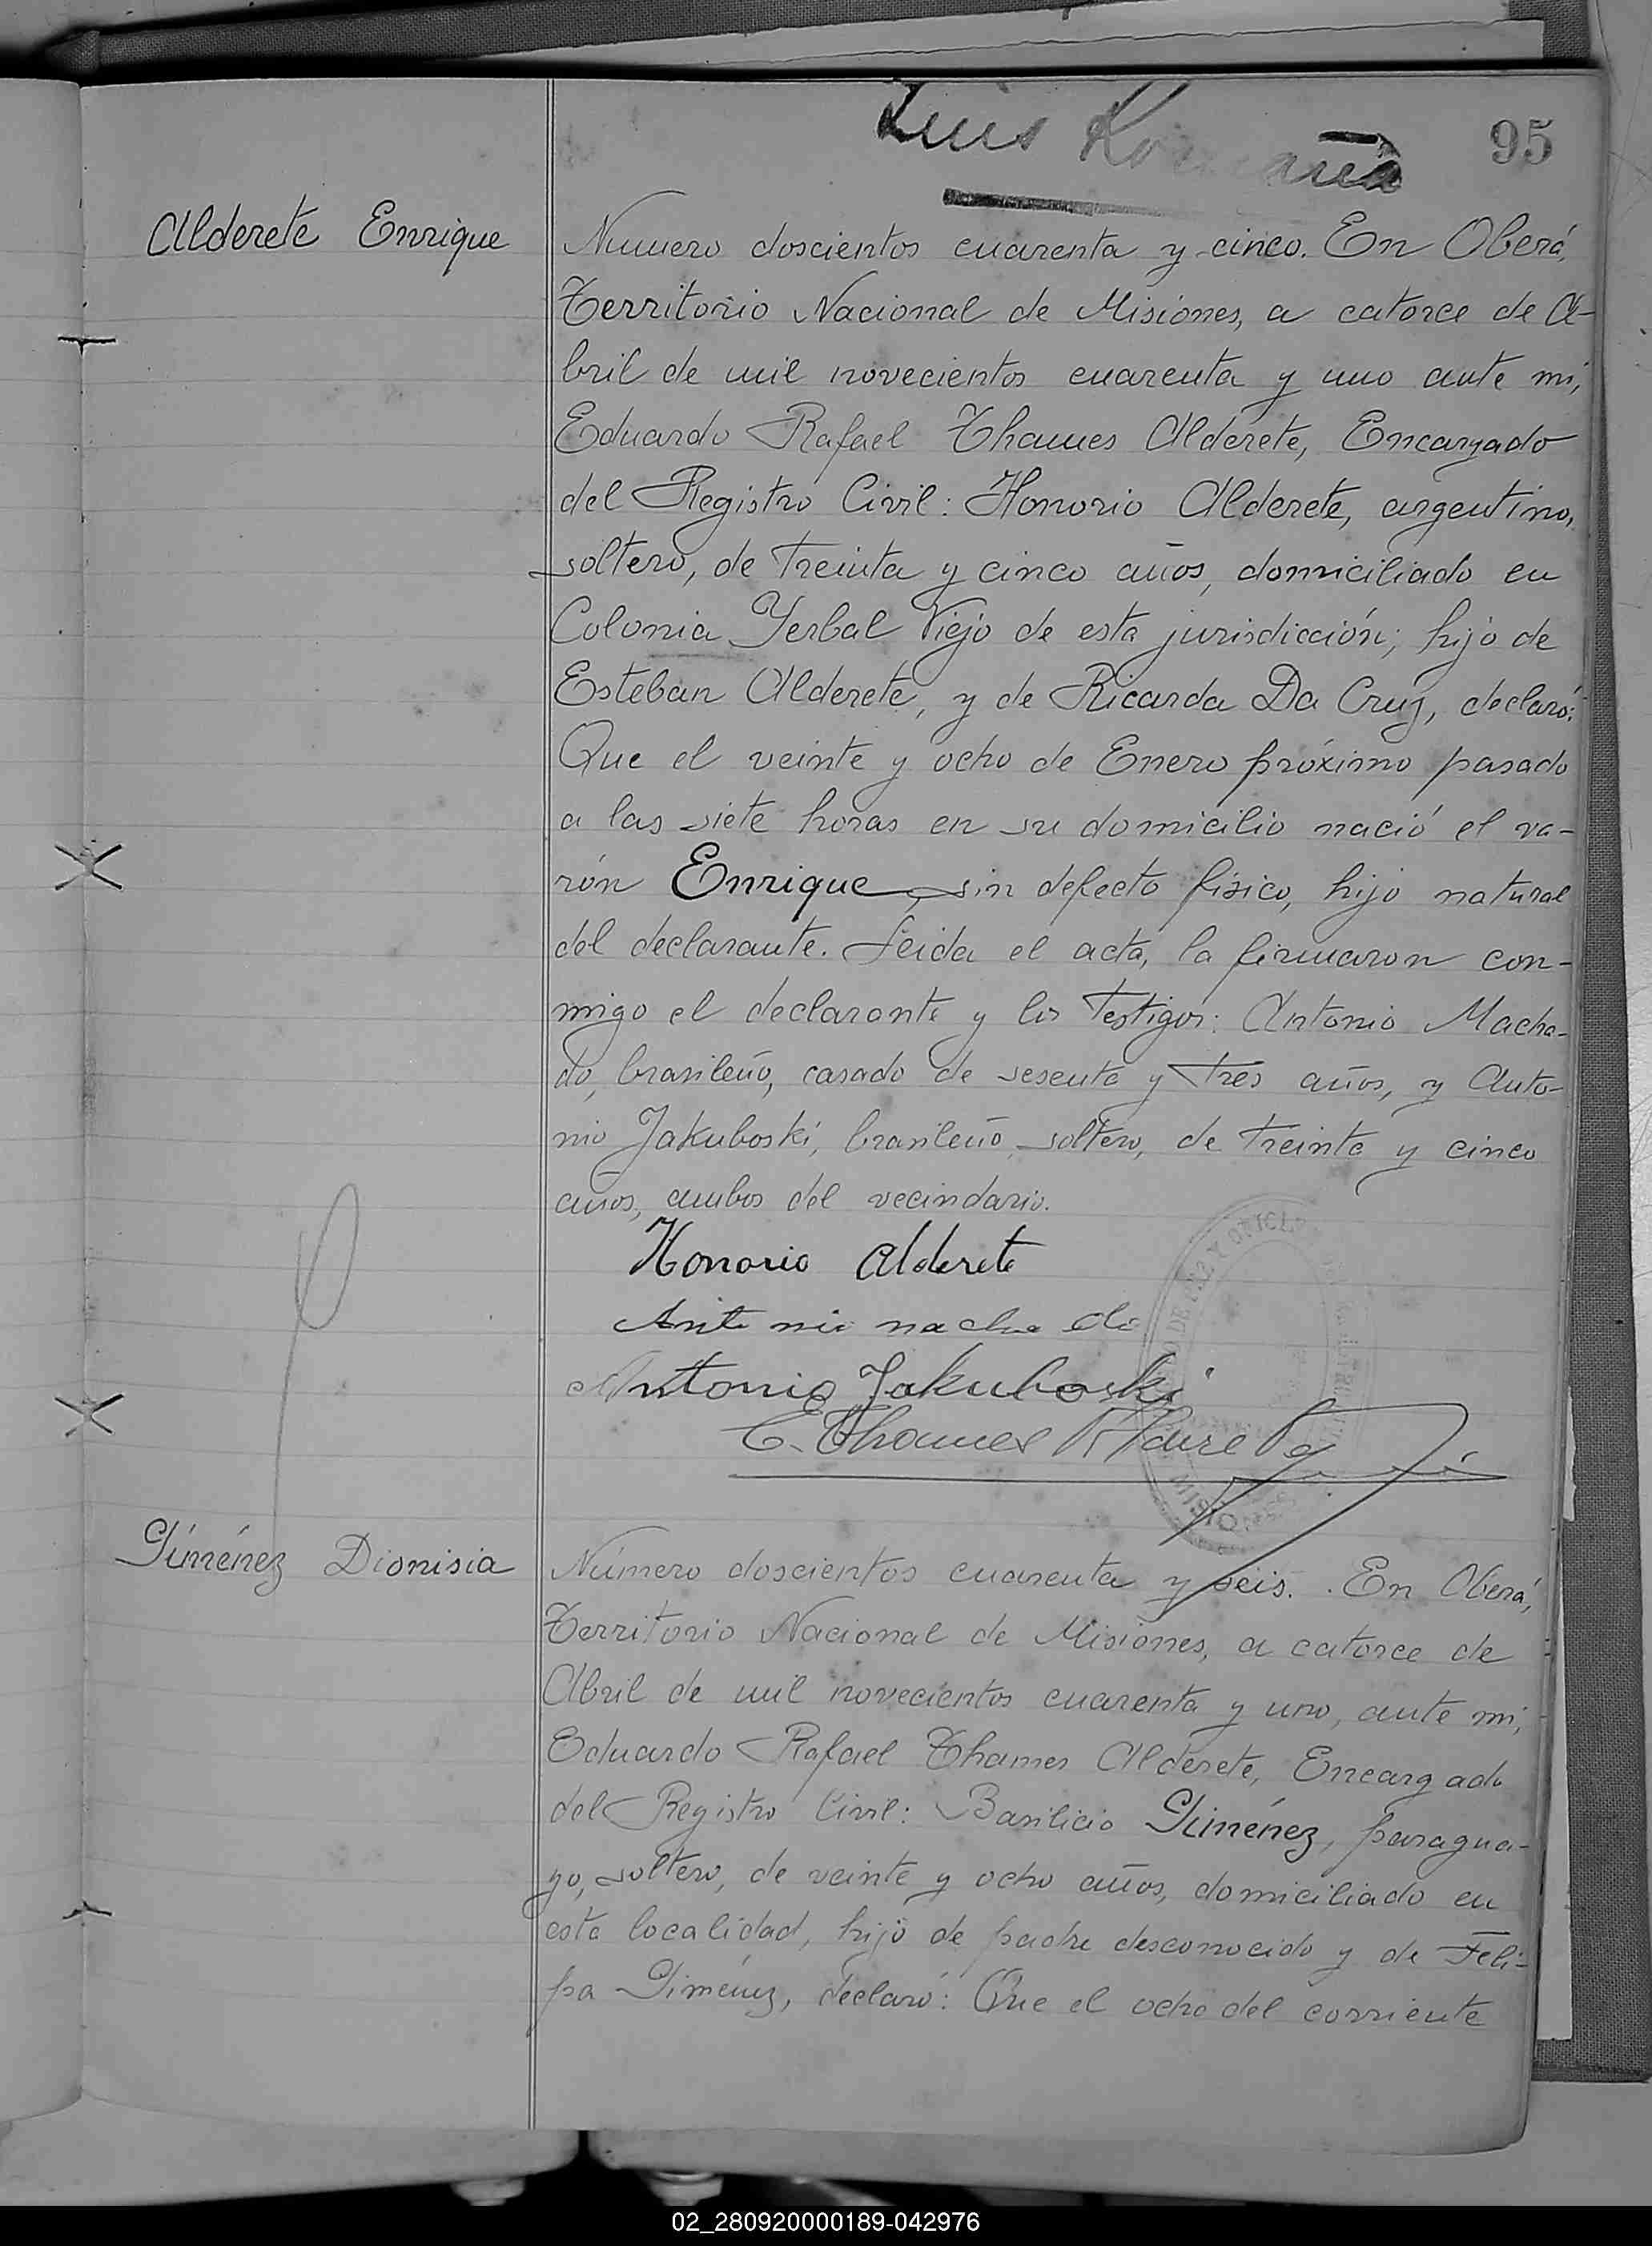 Luis
95
Alderete Enrique
Numero doscientos cuarenta y cinco. En Oberá,
Territorio Nacional de Misiones, a catorce de A-
bril de mil novecientos cuarenta y uno ante mi,
Eduardo Rafael Thames Alderete, Encargado
del Registro Civil: Honorio Alderete, argentino,
soltero, de treinta y cinco años, domiciliado en
Colonia Yerbal Viejo de esta jurisdicción; hijo de
Esteban Alderete, y de Ricarda Da Cruz, declaró:
Que el veinte y ocho de Enero próximo pasado
a las siete horas en su domicilio nació el va-
rón Enrique sin defecto físico, hijo natural
del declarante. Leida el acta, la firmaron con-
migo el declarante y los testigos: Antonio Macha-
do, brasileño, casado de sesenta y tres años, y Anto-
nio Jakuboski, brasileño, soltero, de treinta y cinco
años, ambos del vecindario.
Honorio Alderete
Antonio machado
Antonio Jakuboski
E. Thames Alderete
MISIONES
Giménez Dionisia
Número doscientos cuarenta y seis. En Oberá,
Territorio Nacional de Misiones, a catorce de
Abril de mil novecientos cuarenta y uno, ante mi,
Eduardo Rafael Thames Alderete, Encargado
del Registro Civil: Basilicio Giménez, paragua-
yo, soltero, de veinte y ocho años, domiciliado en
esta localidad, hijo de padre desconocido y de Feli-
pa Giménez, declaró: Que el ocho del corriente
02_280920000189-042976